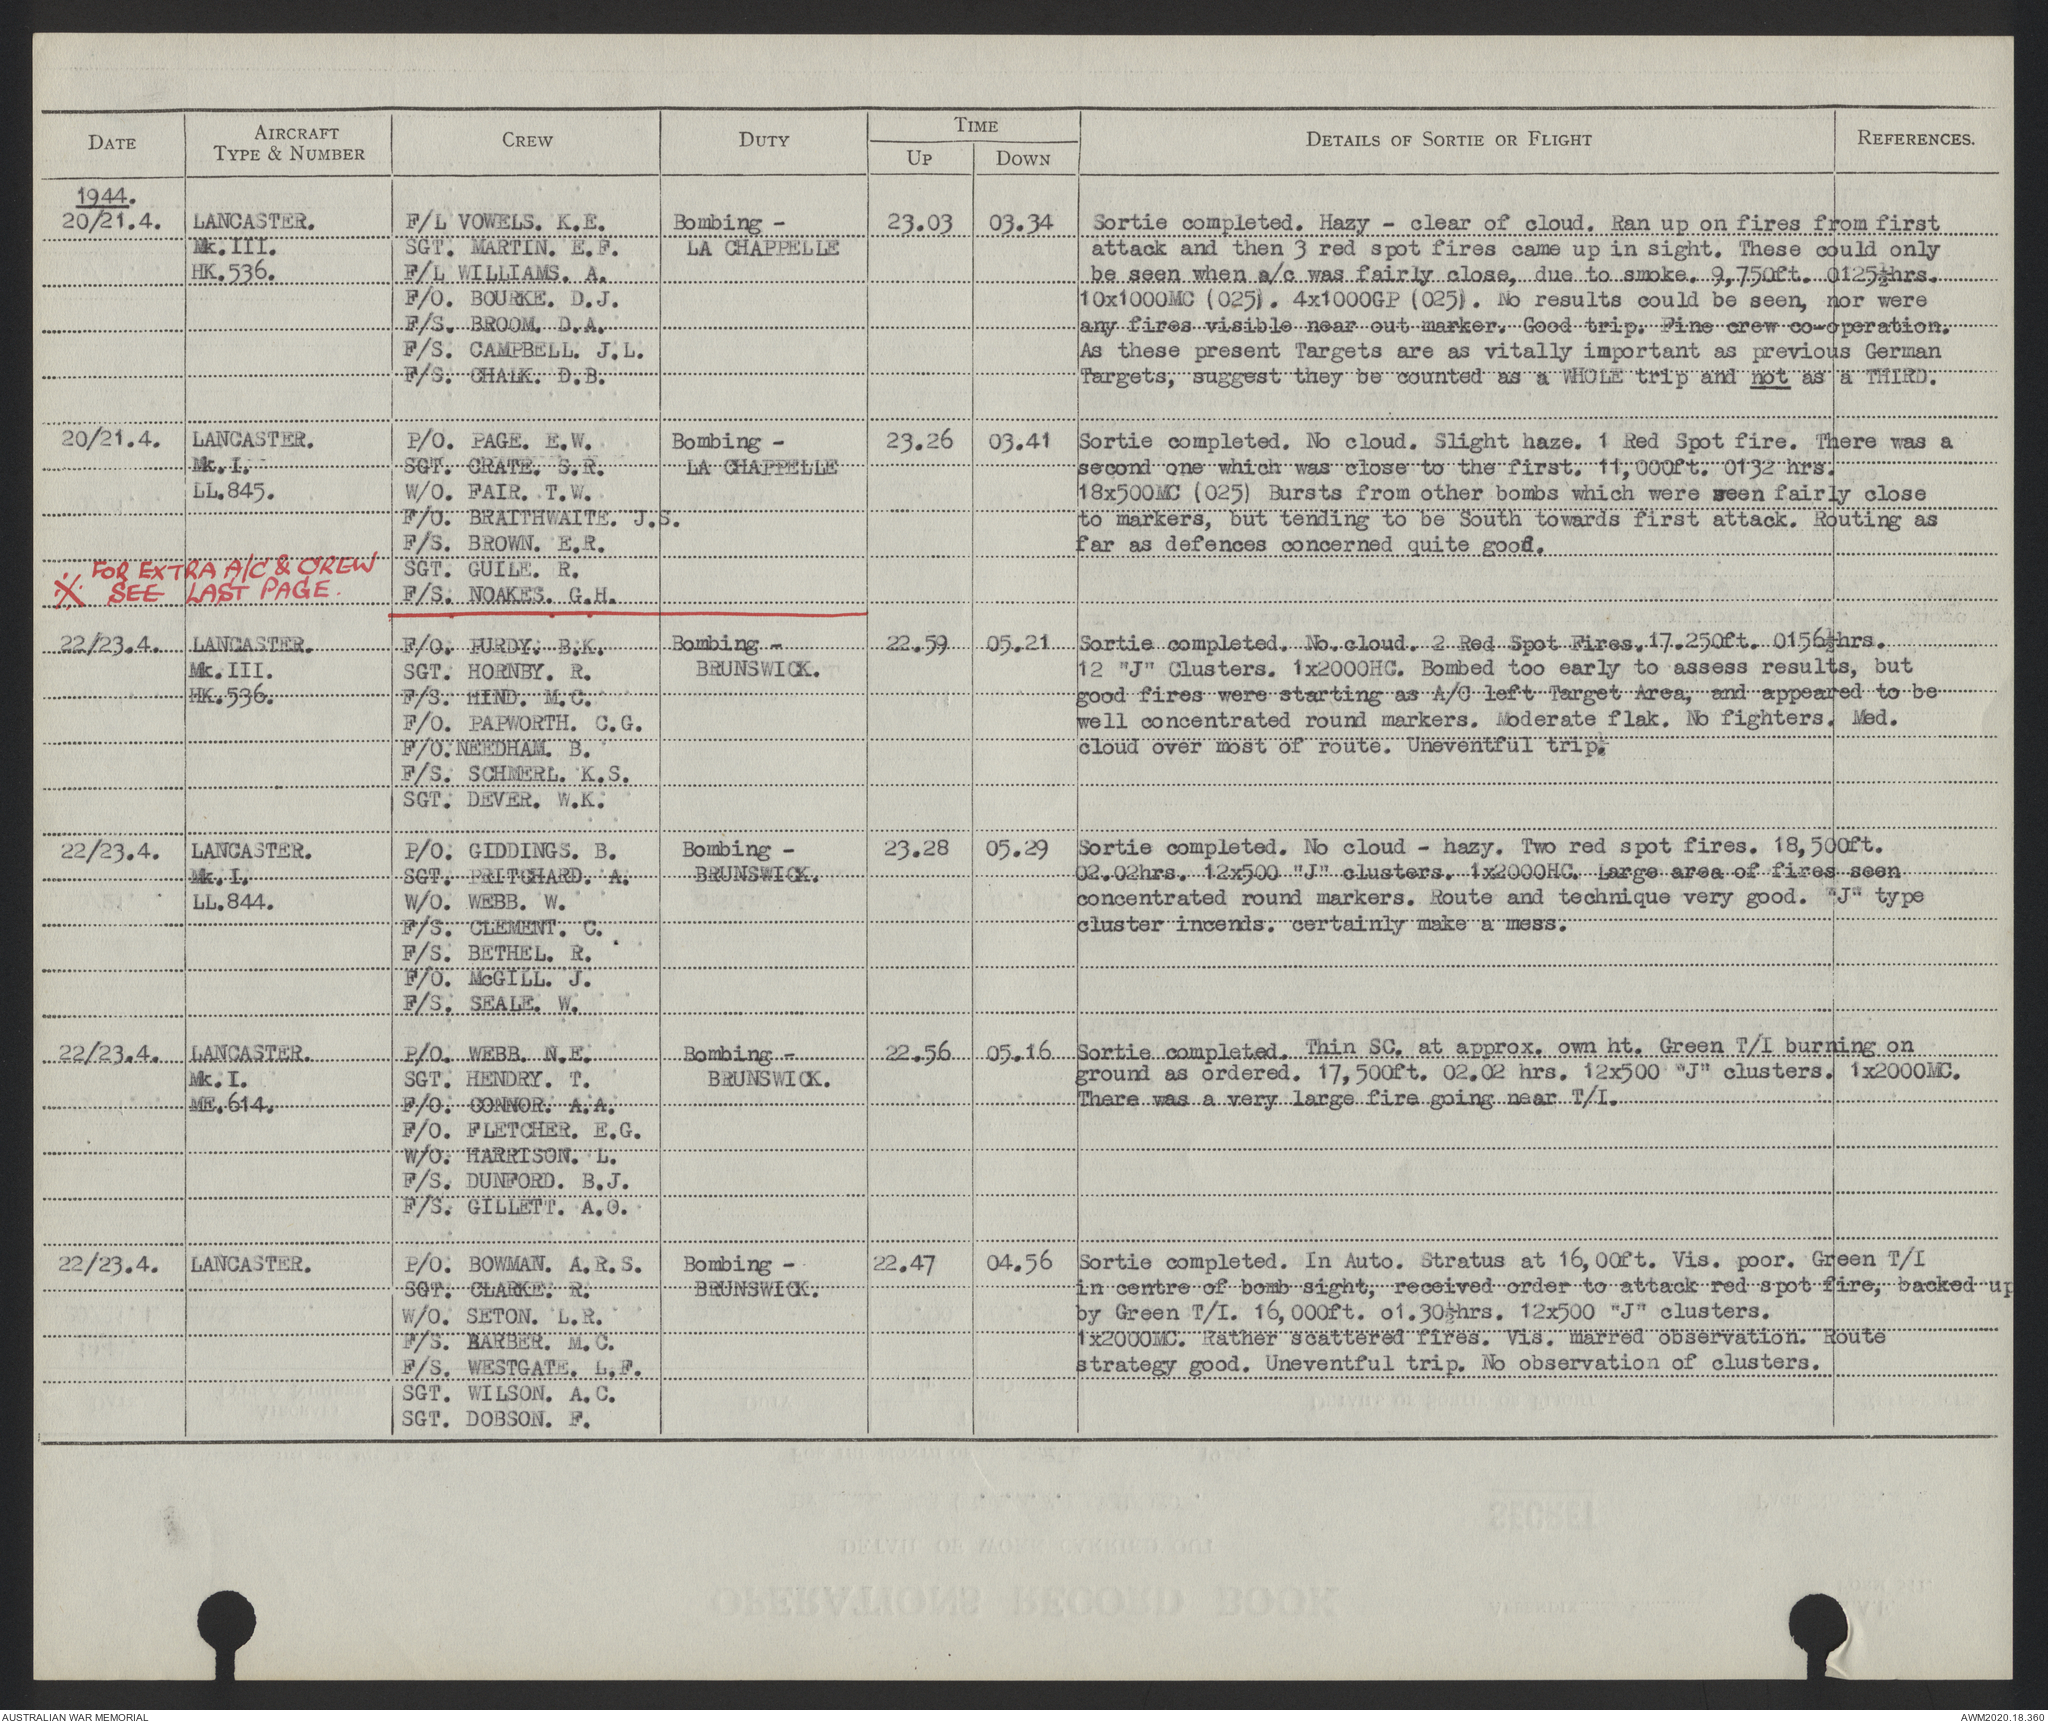 DATE AIRCRAFT TYPE & NUMBER CREW DUTY TIME UP DOWN DETAILS OF SORTIE OR FLIGHT REFERENCES.
1944.
20/21.4. LANCASTER. F/L VOWELS. K.E. Bombing - 23.03 03.34 Sortie completed. Hazy - clear of cloud. Ran up on fires from first
Mk.III. SGT. MARTIN. E.F. LA CHAPPELLE attack and then 3 red spot fires came up in sight. These could only
HK.536. F/L WILLIAMS. A. be seen when a/c was fairly close, due to smoke. 9,750ft. 0125½hrs.
F/O. BOURKE. D.J. 10x1000MC (025). 4x1000GP (025). No results could be seen, nor were
F/S. BROOM. D.A. any fires visible near out marker. Good trip. Fine crew co-operation.
F/S. CAMPBELL. J.L. As these present Targets are as vitally important as previous German
F/S. CHALK. D.B. Targets, suggest they be counted as a WHOLE trip and not as a THIRD.
20/21.4. LANCASTER. P/O. PAGE. E.W. Bombing - 23.26 03.41 Sortie completed. No cloud. Slight haze. 1 Red Spot fire. There was a
Mk.I. SGT. CRATE. S.R. LA CHAPPELLE second one which was close to the first. 11,000ft. 0132 hrs.
LL.845. W/O. FAIR. T.W. 18x500MC (025) Bursts from other bombs which were seen fairly close
F/O. BRAITHWAITE. J.S. to markers, but tending to be South towards first attack. Routing as
F/S. BROWN. E.R. far as defences concerned quite good.
※ FOR EXTRA A/C & CREW SGT. GUILE. R.
SEE LAST PAGE. F/S. NOAKES. G.H.
22/23.4. LANCASTER. F/O. FURDY. B.K. Bombing - 22.59 05.21 Sortie completed. No cloud. 2 Red Spot Fires. 17.250ft. 0156½hrs.
Mk.III. SGT. HORNBY. R. BRUNSWICK. 12 "J" Clusters. 1x2000HC. Bombed too early to assess results, but
HK.536. F/S. HIND. M.C. good fires were starting as A/C left Target Area, and appeared to be
F/O. PAPWORTH. C.G. well concentrated round markers. Moderate flak. No fighters. Med.
F/O.NEEDHAM. B. cloud over most of route. Uneventful trip.
F/S. SCHMERL. K.S.
SGT. DEVER. W.K.
22/23.4. LANCASTER. P/O. GIDDINGS. B. Bombing - 23.28 05.29 Sortie completed. No cloud - hazy. Two red spot fires. 18,500ft.
Mk.I. SGT. PRITCHARD. A. BRUNSWICK. 02.02hrs. 12x500 "J" clusters. 1x2000HC. Large area of fires seen
LL.844. W/O. WEBB. W. concentrated round markers. Route and technique very good. "J" type
F/S. CLEMENT. C. cluster incends. certainly make a mess.
F/S. BETHEL. R.
F/O. McGILL. J.
F/S. SEALE. W.
22/23.4. LANCASTER. P/O. WEBB. N.E. Bombing - 22.56 05.16 Sortie completed. Thin SC. at approx. own ht. Green T/I burning on
Mk.I. SGT. HENDRY. T. BRUNSWICK. ground as ordered. 17,500ft. 02.02 hrs. 12x500 "J" clusters. 1x2000MC.
ME.614. F/O. CONNOR. A.A. There was a very large fire going near T/I.
F/O. FLETCHER. E.G.
W/O. HARRISON. L.
F/S. DUNFORD. B.J.
F/S. GILLETT. A.O.
22/23.4. LANCASTER. P/O. BOWMAN. A.R.S. Bombing - 22.47 04.56 Sortie completed. In Auto. Stratus at 16,00ft. Vis. poor. Green T/I
SGT. CLARKE. R. BRUNSWICK. in centre of bomb sight, received order to attack red spot fire, backed up
W/O. SETON. L.R. by Green T/I. 16,000ft. o1.30½hrs. 12x500 "J" clusters.
F/S. BARBER. M.C. 1x2000MC. Rather scattered fires. Vis. marred observation. Route
F/S. WESTGATE. L.F. strategy good. Uneventful trip. No observation of clusters.
SGT. WILSON. A.C.
SGT. DOBSON. F.
AUSTRALIAN WAR MEMORIAL AWM2020.18.360